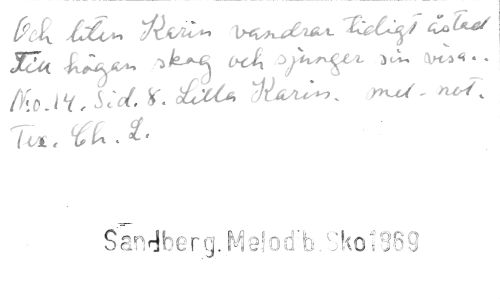 Och liten Karin vandrar tidigt åstad
Till högan skog och sjunger sin visa..
No.14. Sid. 8. Lilla Karin. mel. not.
Tex. Ch. L.
Sandberg. Melodb. Sko 1869